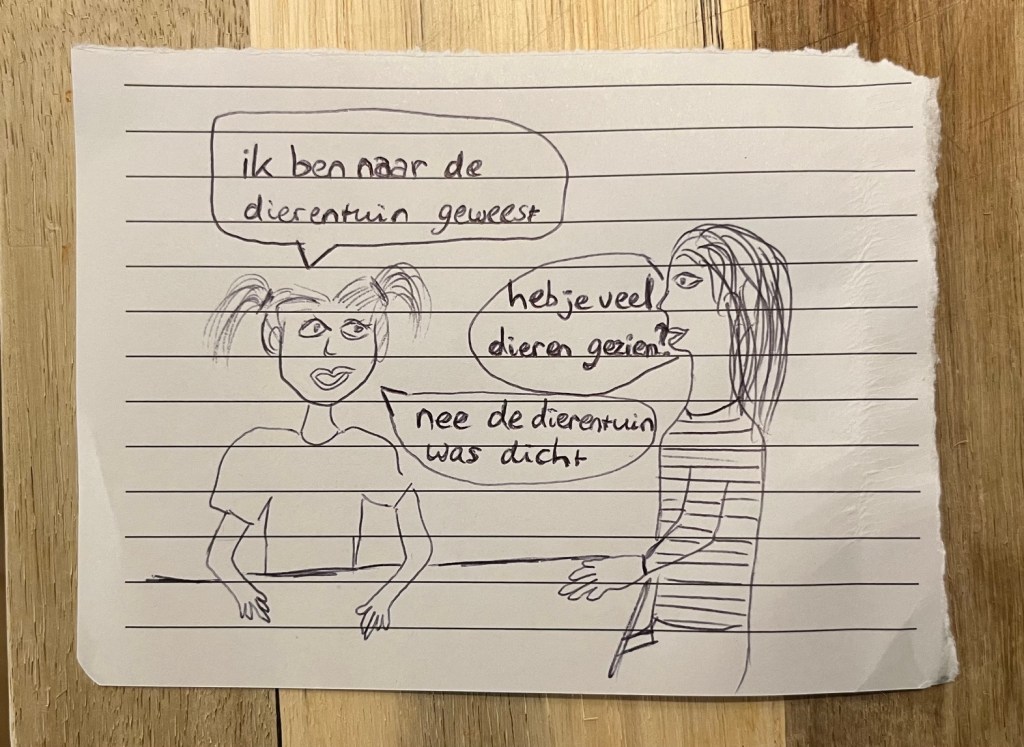 ik ben naar de
dierentuin geweest
heb je veel
dieren gezien?
nee de dierentuin
was dicht